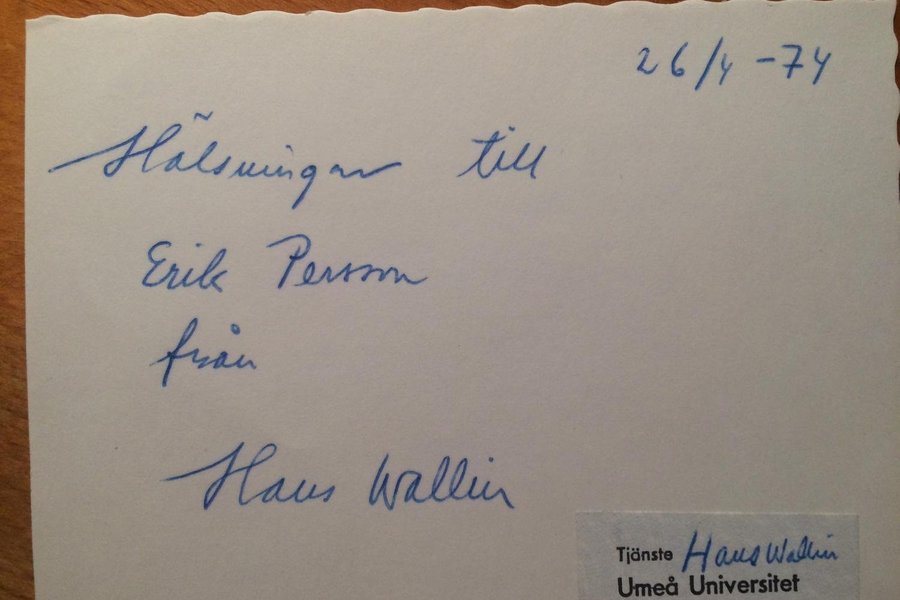 26/4 -74
Hälsningar till
Erik Persson
från
Hans Wallin
Tjänste Hans Wallin
Umeå Universitet